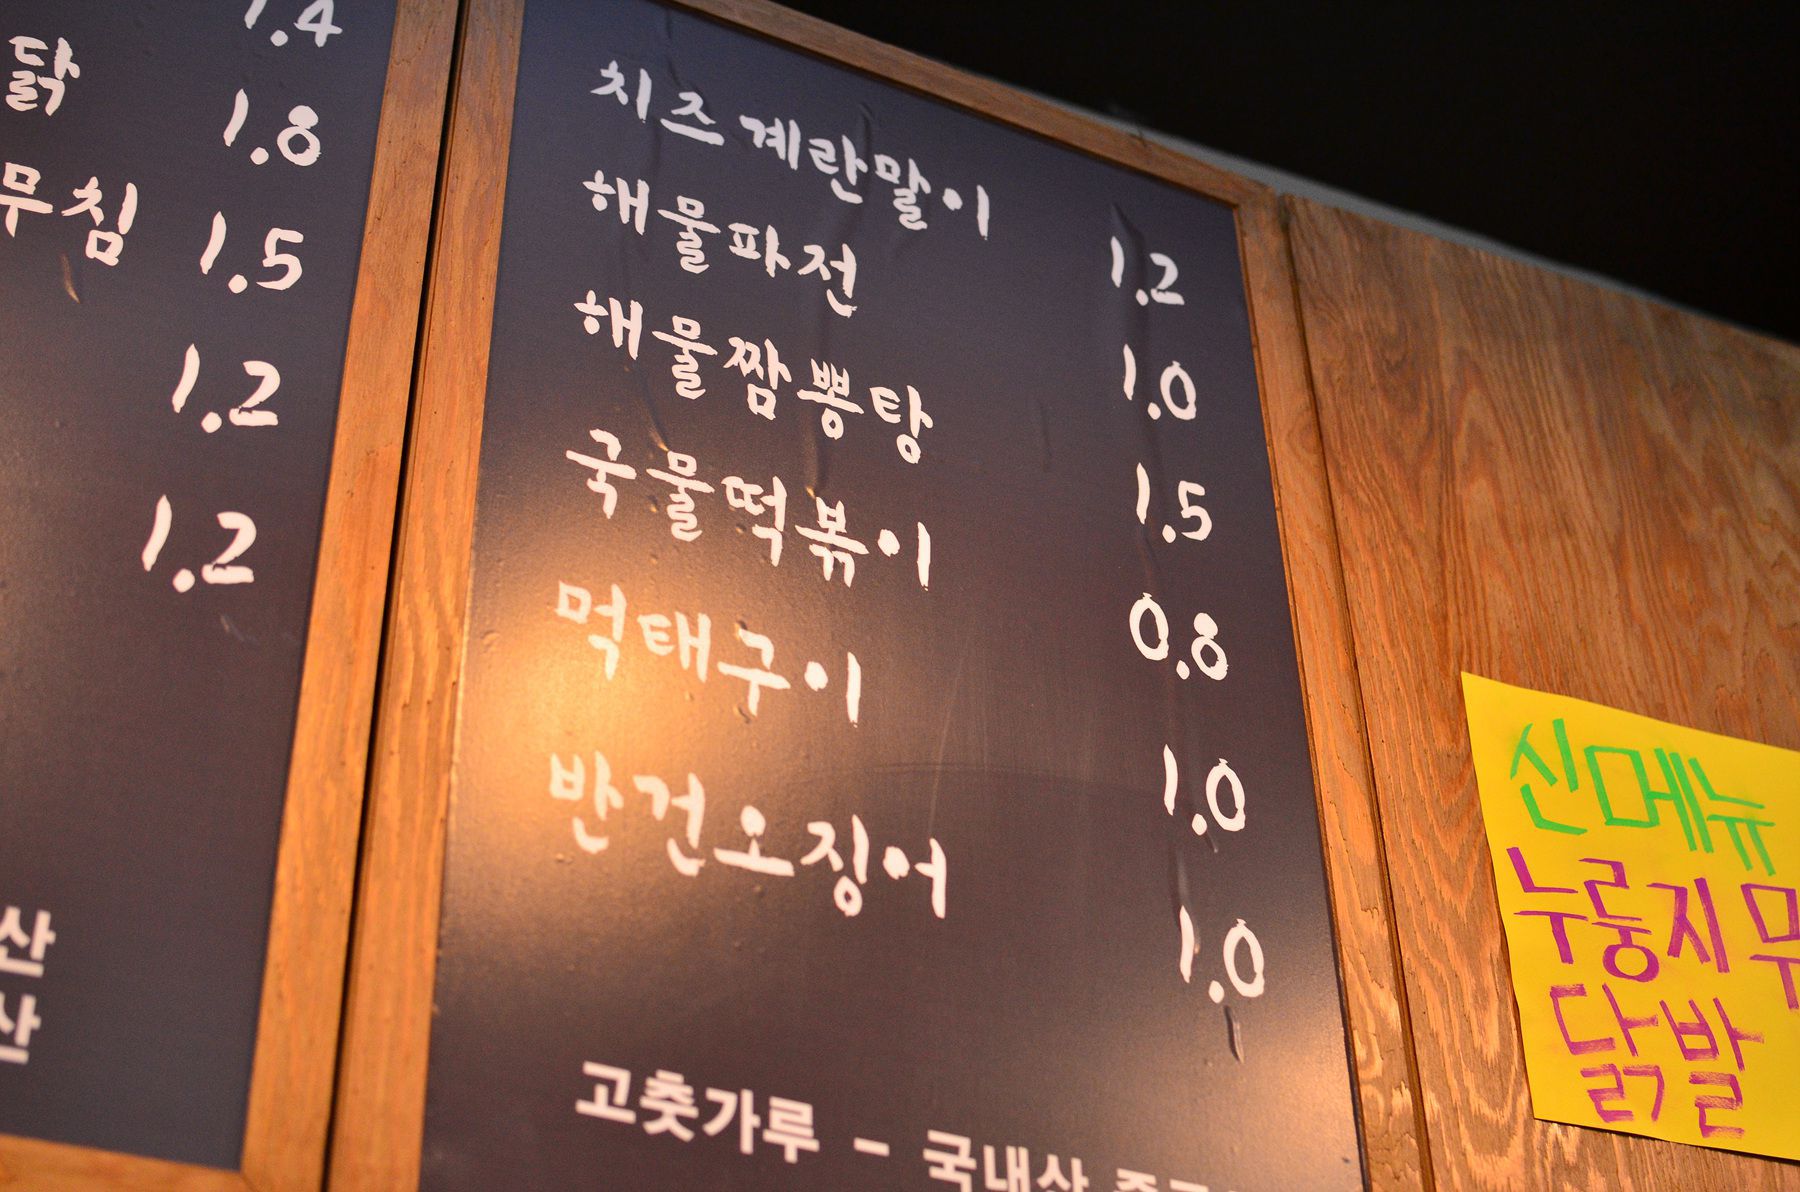 1.4
닭 1.8
무침 1.5
1.2
1.2
산
산
치즈계란말이 1.2
해물파전 1.0
해물짬뽕탕 1.5
국물떡볶이 0.8
먹태구이 1.0
반건오징어 1.0
고춧가루 - 국내산
신메뉴
누룽지
닭발